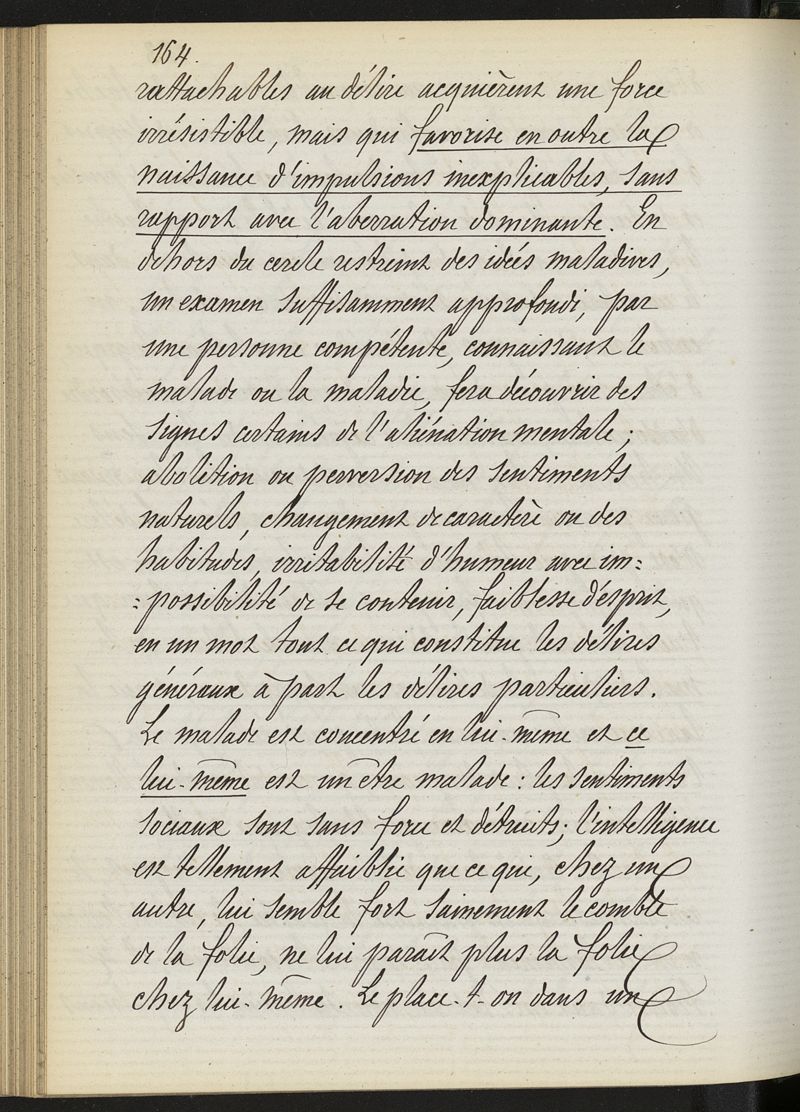 164.
rattachables au délire acquièrent une force
irrésistible, mais qui favorise en outre la
naissance d'impulsions inexplicables, sans
rapport avec l'aberration dominante. En
dehors du cercle restreint des idées maladives,
un examen suffisamment approfondi, par
une personne compétente, connaissant le
malade ou la maladie, fera découvrir des
signes certains de l'aliénation mentale ;
abolition ou perversion des sentiments
naturels, changement de caractère ou des
habitudes, irritabilité d'humeur avec im=
=possibilité de se contenir, faiblesse d'esprit,
en un mot tout ce qui constitue les délires
généraux à part les délires particuliers.
Le malade est concentré en lui-même et ce
lui-même est un être malade : les sentiments
sociaux sont sans force et détruits ; l'intelligence
est tellement affaiblie que ce qui, chez un
autre, lui semble fort sainement le comble
de la folie, ne lui paraît plus la folie
chez lui-même. Le place-t-on dans un